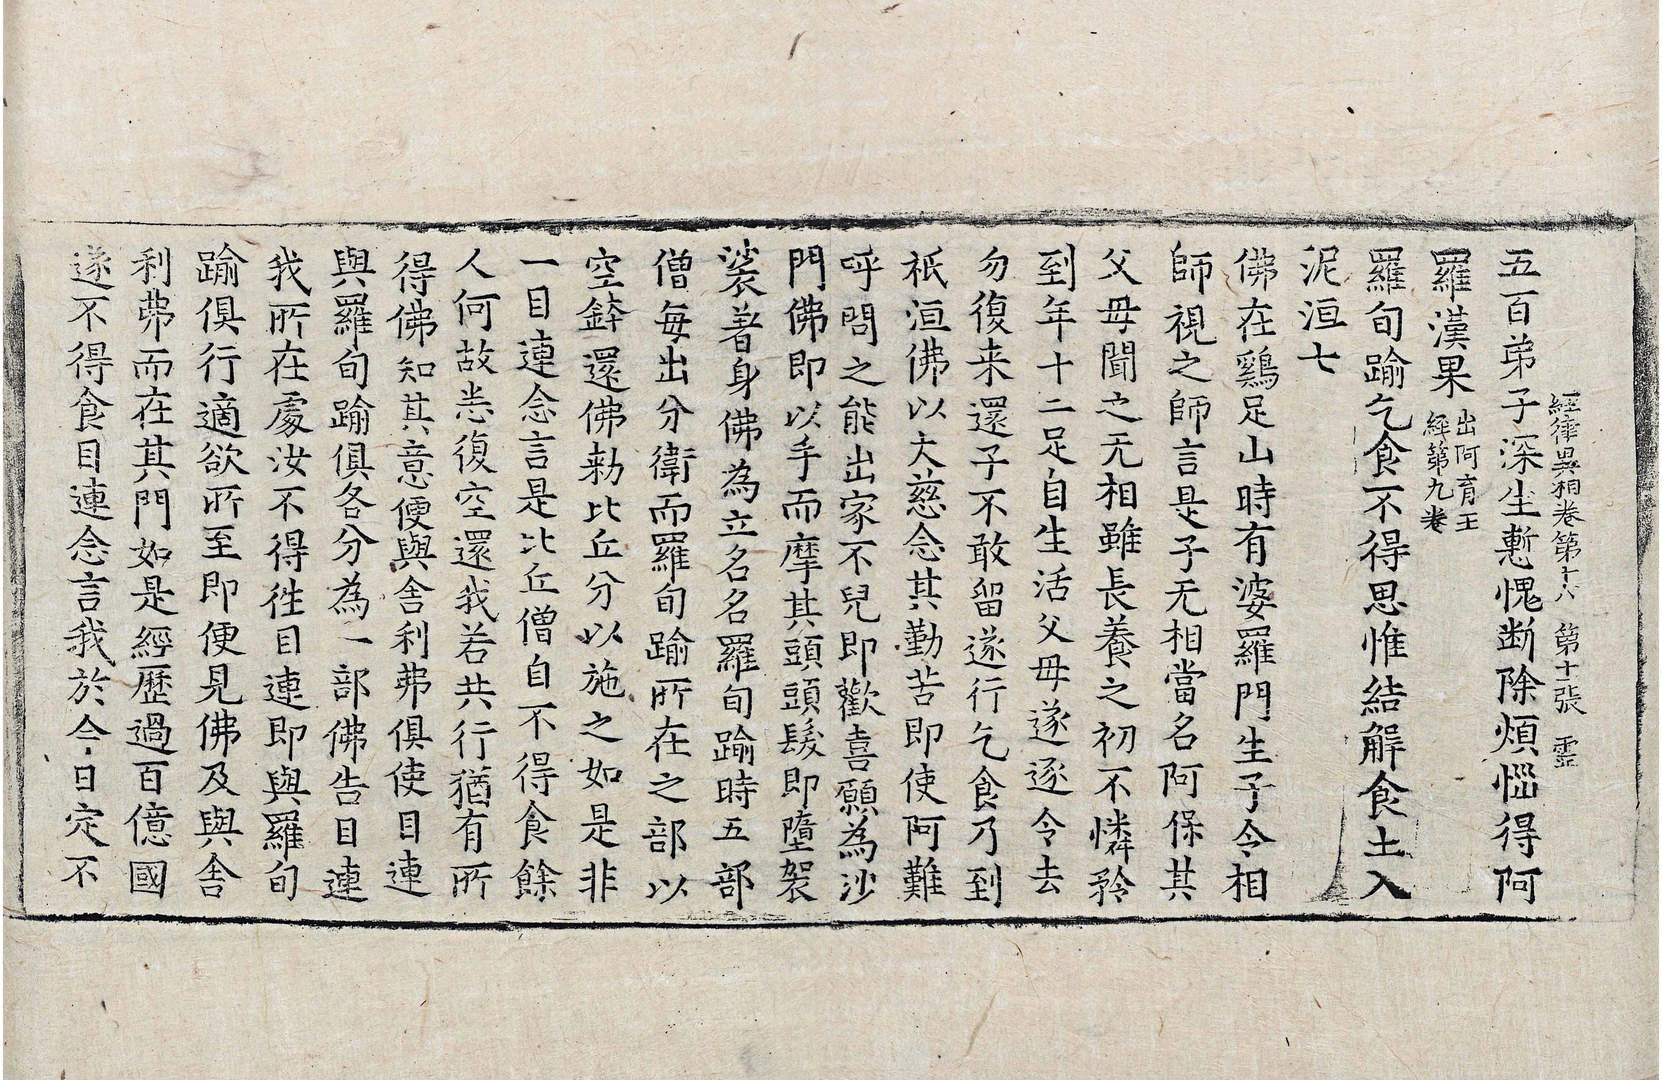 經律異相卷第十八 第十張 靈
五百弟子深生慙愧断除煩惱得阿
羅漢果出阿育王經第九卷
羅旬踰乞食不得思惟結解食土入
泥洹七
佛在鷄足山時有婆羅門生子令相
師視之師言是子无相當名阿保其
父母聞之无相雖長養之初不憐矜
到年十二足自生活父母遂逐令去
勿復来還子不敢留遂行乞食乃到
祇洹佛以大慈念其勤苦即使阿難
呼問之能出家不兒即歡喜願為沙
門佛即以手而摩其頭頭髮即墮袈
裟著身佛為立名名羅旬踰時五部
僧每出分衛而羅旬踰所在之部以
空鉢還佛勑比丘分以施之如是非
一目連念言是比丘僧自不得食餘
人何故恙復空還我若共行猶有所
得佛知其意便與舍利弗俱使目連
與羅旬踰俱各分為一部佛告目連
我所在處汝不得徃目連即與羅旬
踰俱行適欲所至即便見佛及與舍
利弗而在其門如是經歷過百億國
遂不得食目連念言我於今日定不